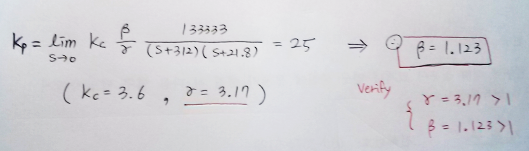 Kp = lim s→0 Kc β/γ 133333/((S+312)(S+21.8)) = 25 ⇒ ∴ β = 1.123
( Kc = 3.6 , γ = 3.17 )
Verify { γ = 3.17 > 1
β = 1.123 > 1